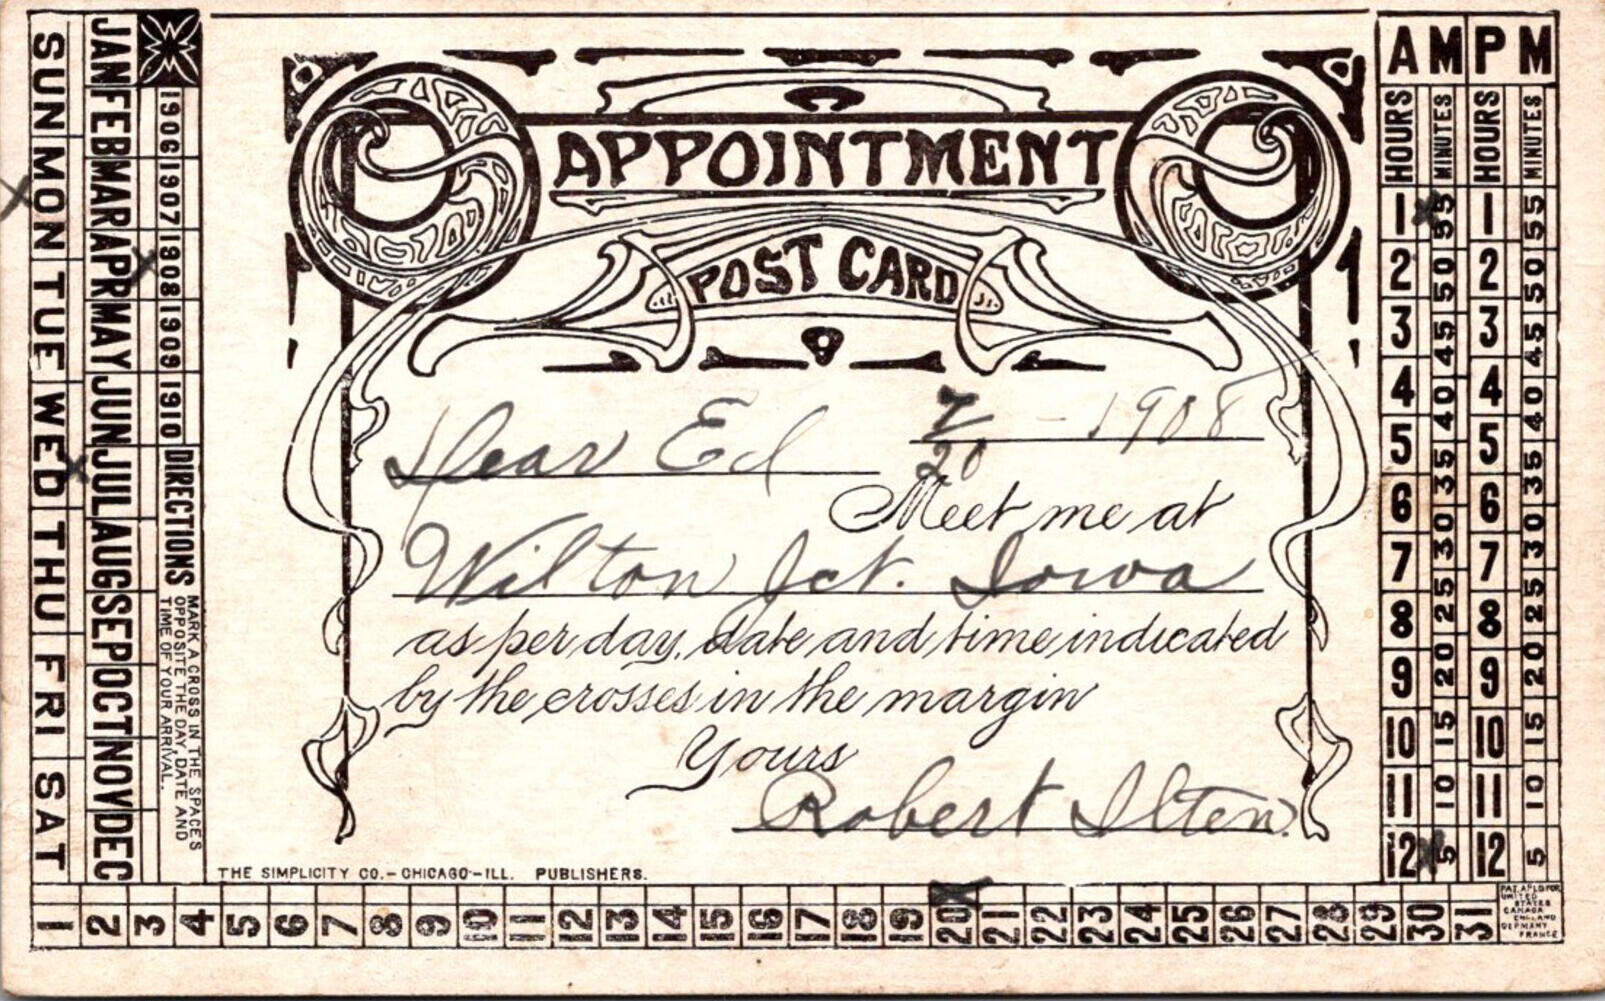 SUN MON TUE WED THU FRI SAT
JAN FEB MAR APR MAY JUN JUL AUG SEP OCT NOV DEC
1906 1907 1908 1909 1910 DIRECTIONS
MARK A CROSS IN THE SPACES
OPPOSITE THE DAY, DATE AND
TIME OF YOUR ARRIVAL.
APPOINTMENT
POST CARD
7/20 - 1908
Dear Ed
Meet me at
Wilton Jct. Iowa
as per day, date and time indicated
by the crosses in the margin
Yours
Robert Ilten.
THE SIMPLICITY CO.-CHICAGO-ILL. PUBLISHERS.
AM PM
HOURS MINUTES HOURS MINUTES
1 55 1 55
2 50 2 50
3 45 3 45
4 40 4 40
5 35 5 35
6 30 6 30
7 25 7 25
8 20 8 20
9 15 9 15
10 10 10 10
11 5 11 5
12 12
1 2 3 4 5 6 7 8 9 10 11 12 13 14 15 16 17 18 19 20 21 22 23 24 25 26 27 28 29 30 31
PAT. APLD FOR
UNITED
STATES
CANADA
ENGLAND
GERMANY
FRANCE